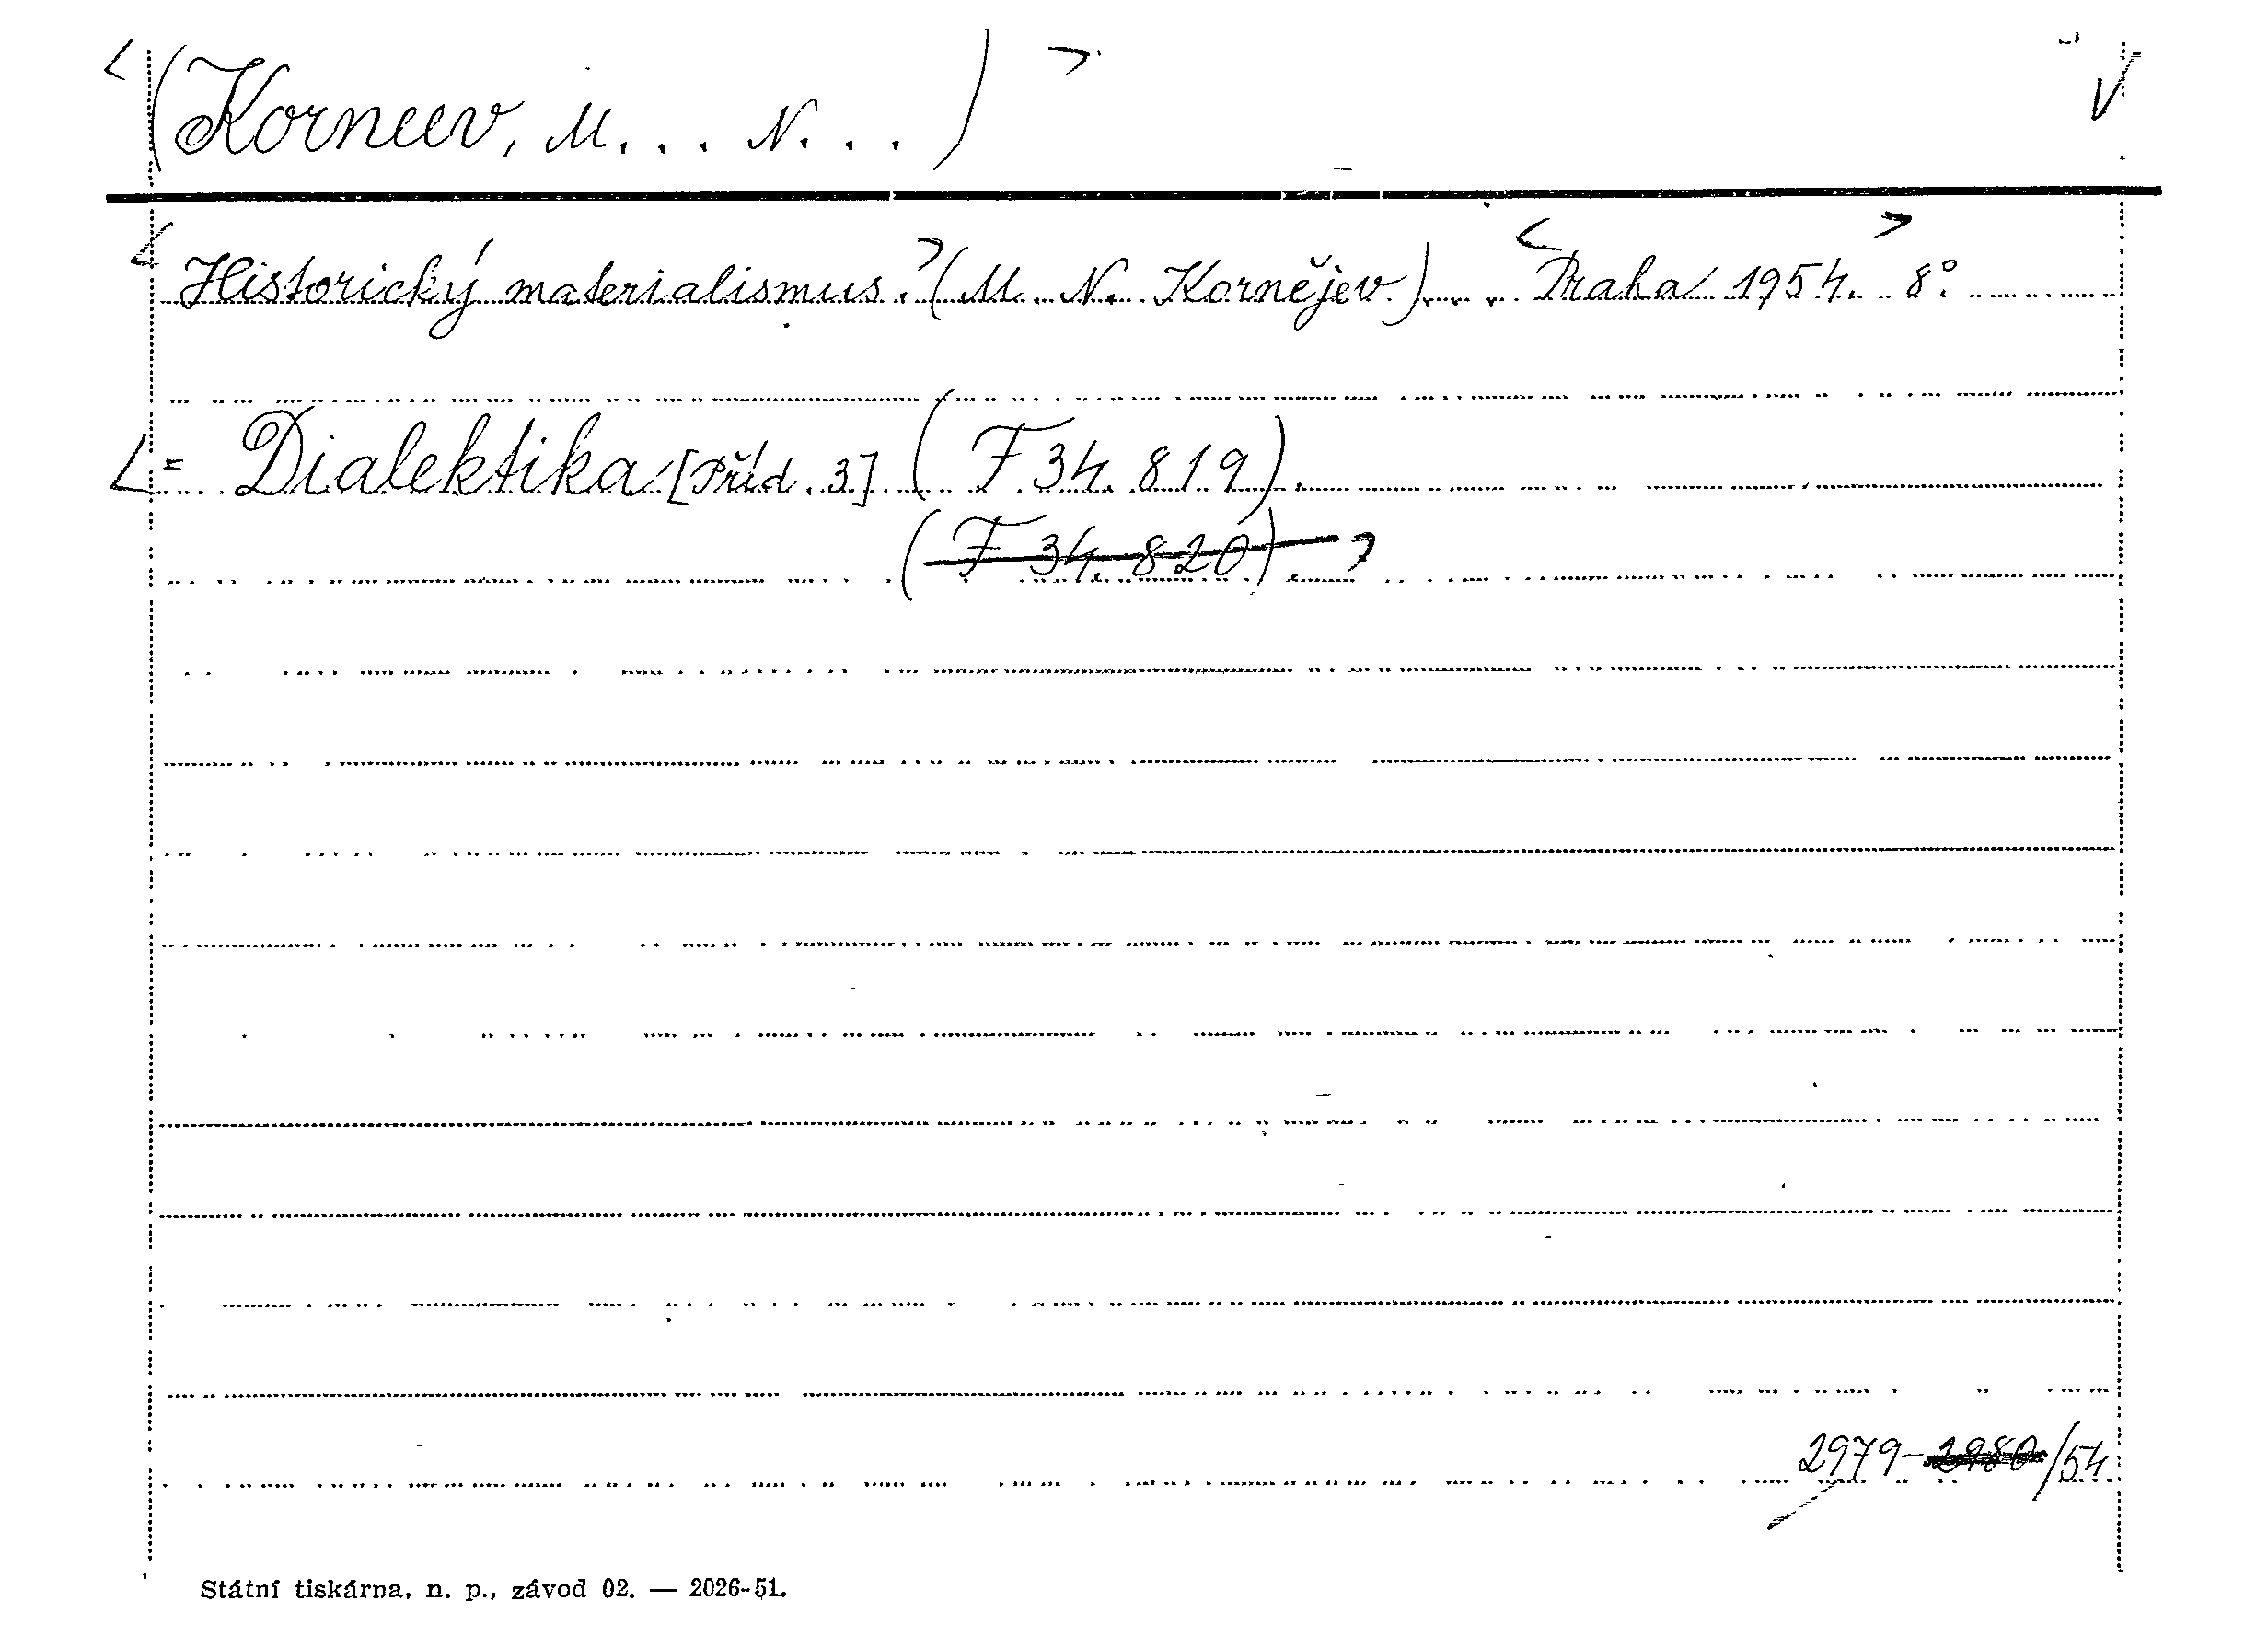 <(Korneev, M... N...)> V
<Historický materialismus.>(M. N. Kornějev)... <Praha> 1954. 8°.
<= Dialektika [Příd. 3] (F 34.819).
(F 34.820)>
2979-2980/54.
Státní tiskárna, n. p., závod 02. — 2026-51.